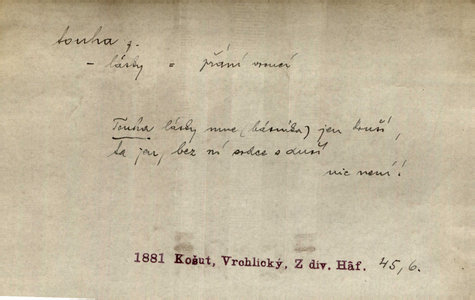 touha f.
– lásky = přání vroucí
Touha lásky mne (básníka) jen kruší,
ta jen, bez ní srdce s duší
nic není!
1881 Košut, Vrchlický, Z div. Háf. 45, 6.